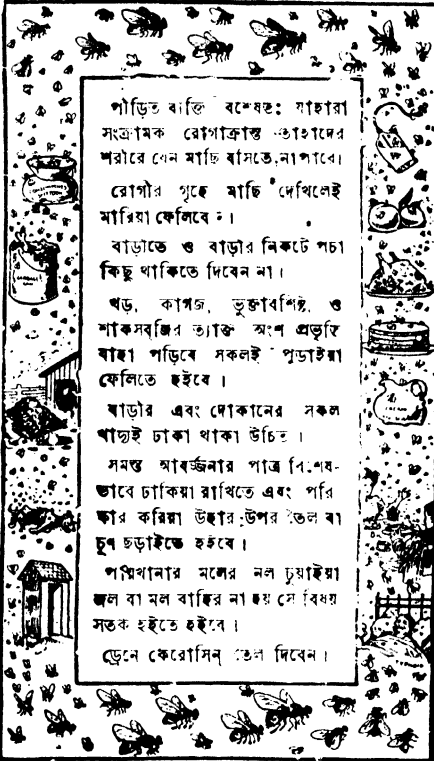 পীড়িত ব্যক্তি বিশেষতঃ যাহারা
সংক্রামক রোগাক্রান্ত তাহাদের
শরীরে যেন মাছি বসিতে না পারে।
রোগীর গৃহে মাছি দেখিলেই
মারিয়া ফেলিবেন।
বাড়ীতে ও বাড়ীর নিকটে পচা
কিছু থাকিতে দিবেন না।
খড়, কাগজ, ভুক্তাবশিষ্ট, ও
শাকসবজির ত্যাক্ত অংশ প্রভৃতি
যাহা পড়িবে সকলই পুড়াইয়া
ফেলিতে হইবে।
বাড়ীর এবং দোকানের সকল
খাদ্যই ঢাকা থাকা উচিত।
সমস্ত আবর্জ্জনার পাত্র বিশেষ-
ভাবে ঢাকিয়া রাখিতে এবং পরি
ষ্কার করিয়া উহার উপর তৈল বা
চূণ ছড়াইতে হইবে।
পায়খানার মলের নল চুয়াইয়া
জল বা মল বাহির না হয় সে বিষয়
সতর্ক হইতে হইবে।
ড্রেনে কেরোসিন তেল দিবেন।
CREAM